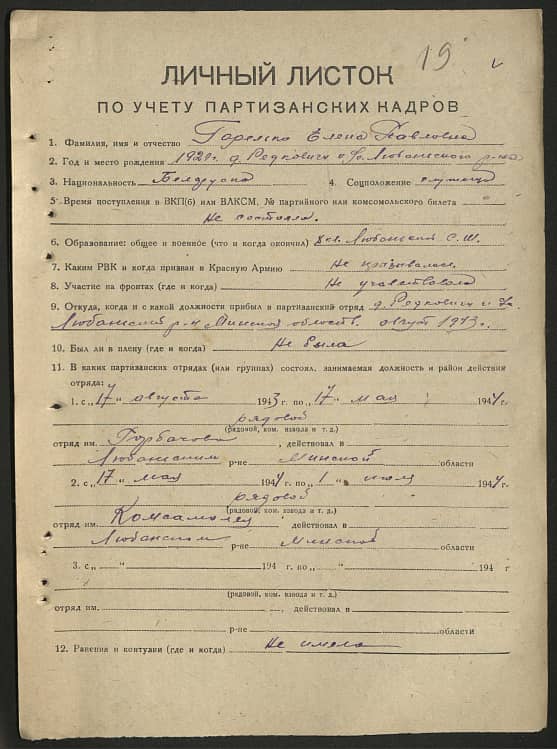 19
ЛИЧНЫЙ ЛИСТОК
ПО УЧЕТУ ПАРТИЗАНСКИХ КАДРОВ
1. Фамилия, имя и отчество Елена Павловна
2. Год и место рождения д. Редковичи Любанского р-на
3. Национальность Белоруска 4. Соцположение служащ
5. Время поступления в ВКП(б) или ВЛКСМ, № партийного или комсомольского билета
Не состояла.
6. Образование: общее и военное (что и когда окончил) 8 кл. Любанской С.Ш.
7. Каким РВК и когда призван в Красную Армию Не призывалась.
8. Участие на фронтах (где и когда) Не участвовала
9. Откуда, когда и с какой должности прибыл в партизанский отряд д. Редковичи
Любанский р-н Минской август 1943 г.
10. Был ли в плену (где и когда) Не была
11. В каких партизанских отрядах (или группах) состоял, занимаемая должность и район действия
отряда:
1. с „17“ августа 1943 г. по „17“ мая 1944 г.
рядовой
(рядовой, ком. взвода и т. д.)
отряд им. Горбачова, действовал в
Любанском р-не Минской области
2. с „17“ мая 1944 г. по „1“ июля 1944 г.
рядовой
(рядовой, ком. взвода и т. д.)
отряд им. Комсомолец действовал в
Любанском р-не Минской области
3. с „ “ 194 г. по „ “ 194 г
(рядовой, ком. взвода и т. д.)
отряд им. , действовал в
р-не области
12. Ранения и контузии (где и когда) Не имела